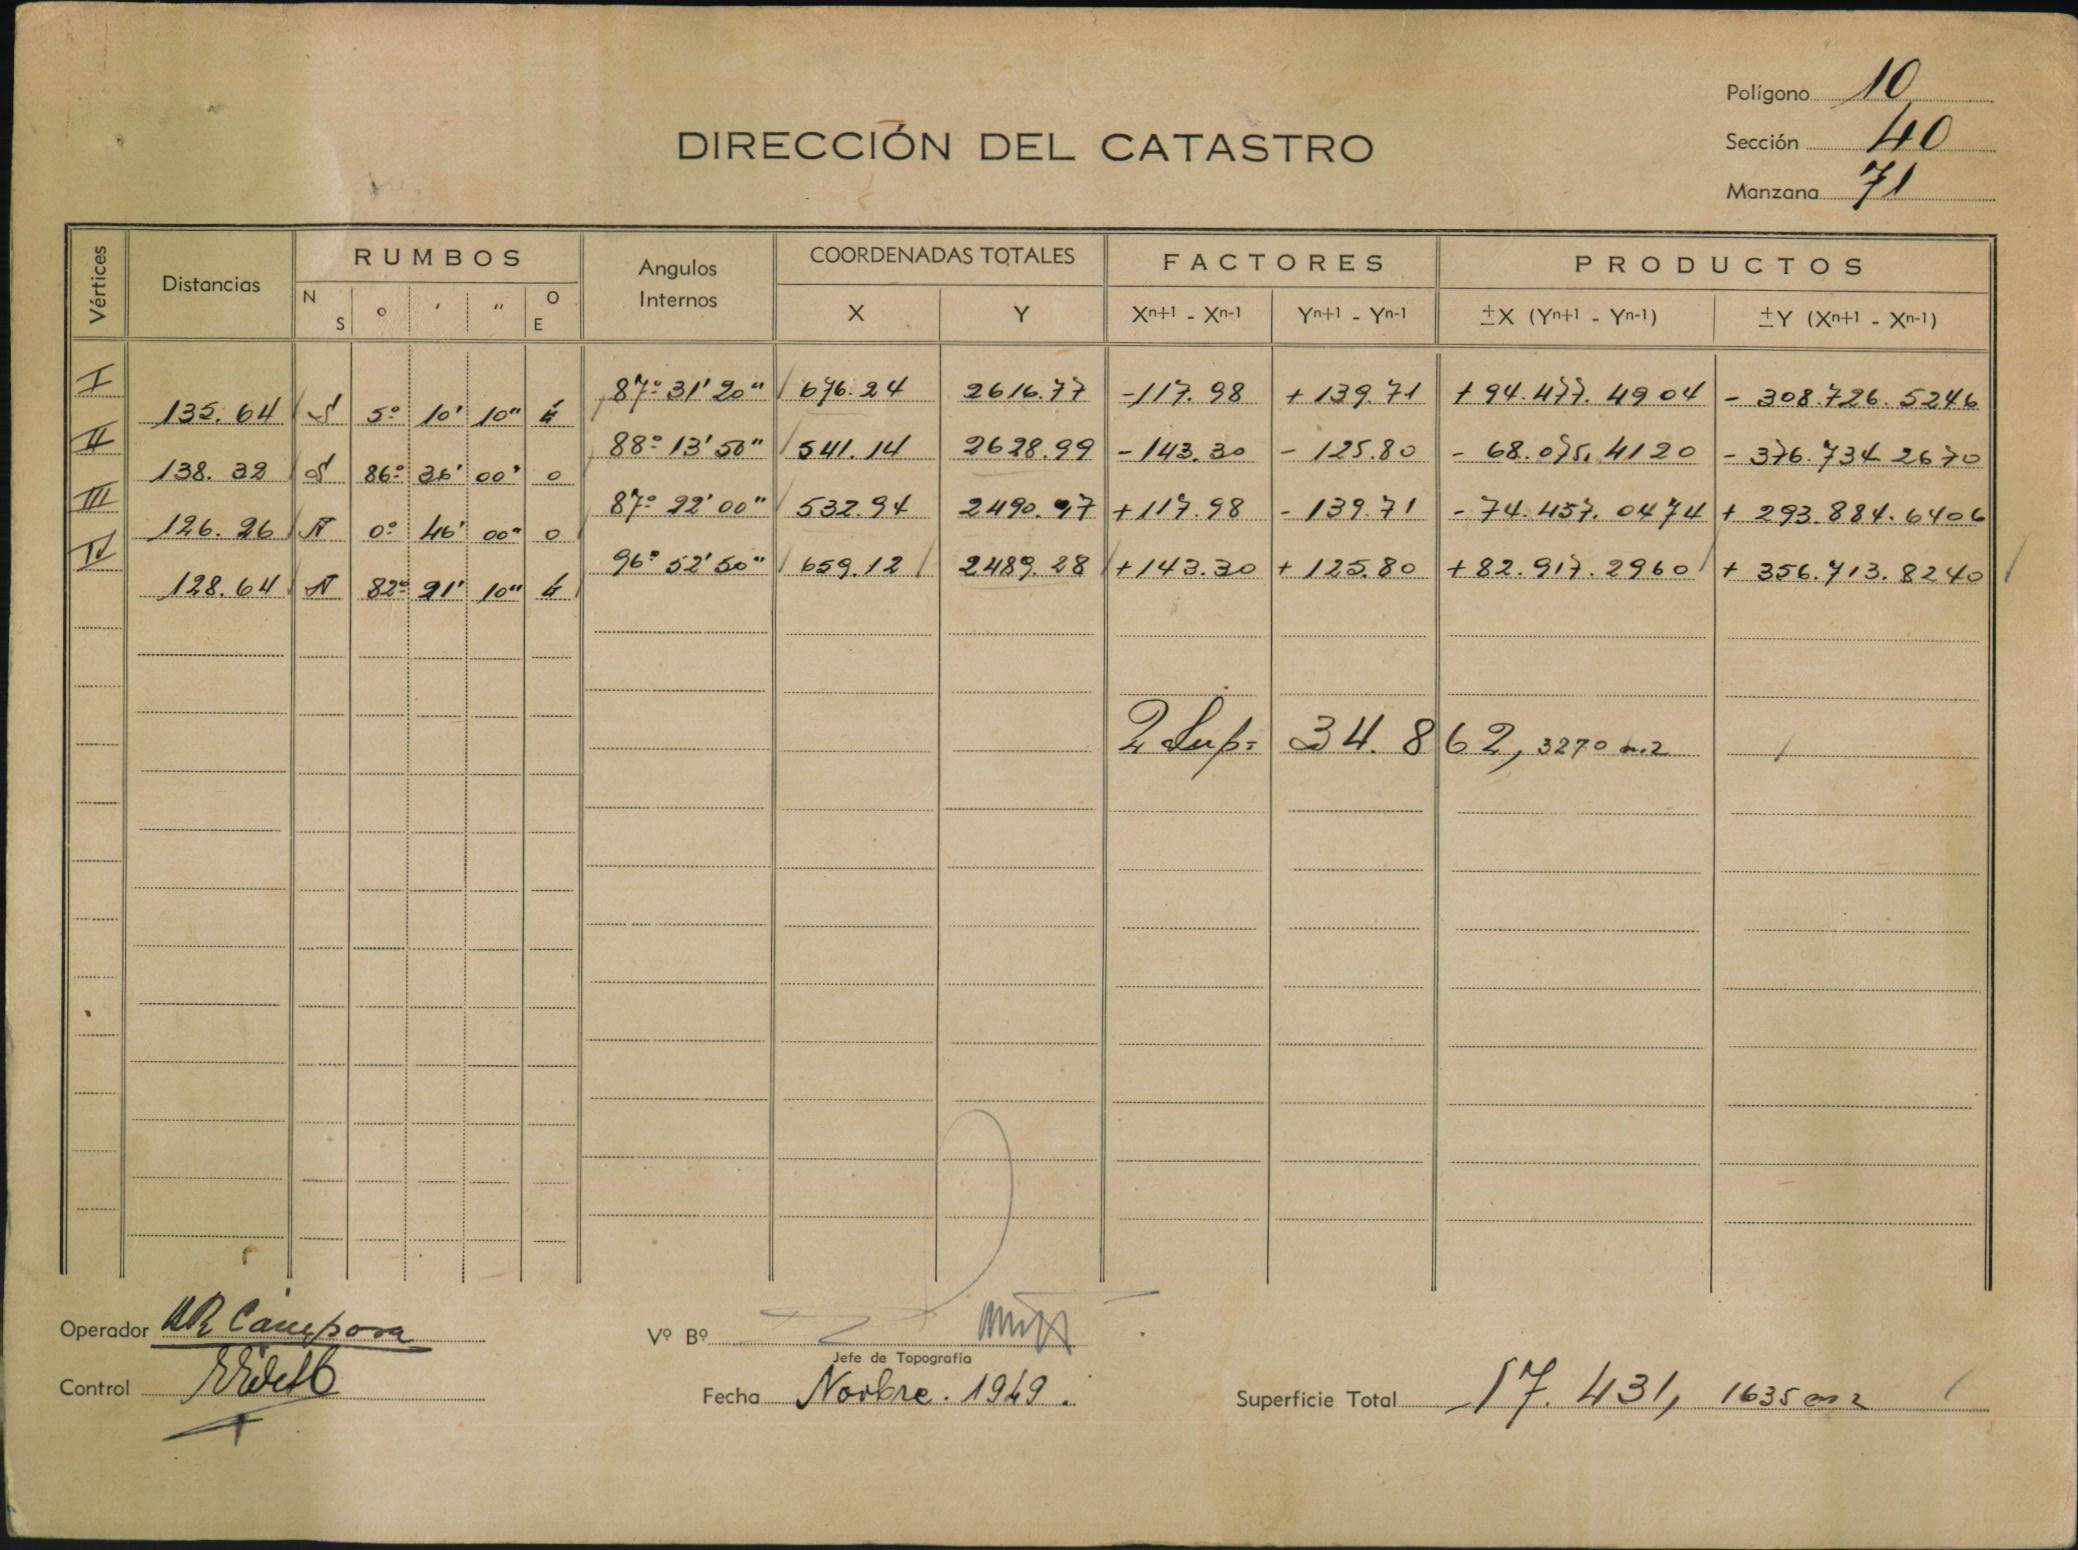 Polígono 10
Sección 40
Manzana 71
DIRECCIÓN DEL CATASTRO
Vértices Distancias RUMBOS Angulos Internos COORDENADAS TOTALES FACTORES PRODUCTOS
N S ° ' " O E X Y Xn+1 - Xn-1 Yn+1 - Yn-1 ±X (Yn+1 - Yn-1) ±Y (Xn+1 - Xn-1)
I 87° 31' 20" 676.24 2616.77 -117.98 +139.71 +94.477.4904 - 308.726.5246
135.64 S 5° 10' 10" E
II 88° 13' 50" 541.14 2628.99 -143.30 - 125.80 - 68.075.4120 - 376.734 2670
138.32 S 86° 36' 00" O
III 87° 22' 00" 532.94 2490.97 +117.98 - 139.71 - 74.457.0474 + 293.884.6406
126.26 N 0° 46' 00" O
IV 96° 52' 50" 659.12 2489.28 +143.30 + 125.80 +82.917.2960 + 356.713.8240
128.64 N 82° 21' 10" E
2 Sup= 34.862, 3270 m2
Operador
Vº Bº
Jefe de Topografía
Control
Fecha Novbre. 1949.
Superficie Total 17.431, 1635 m2